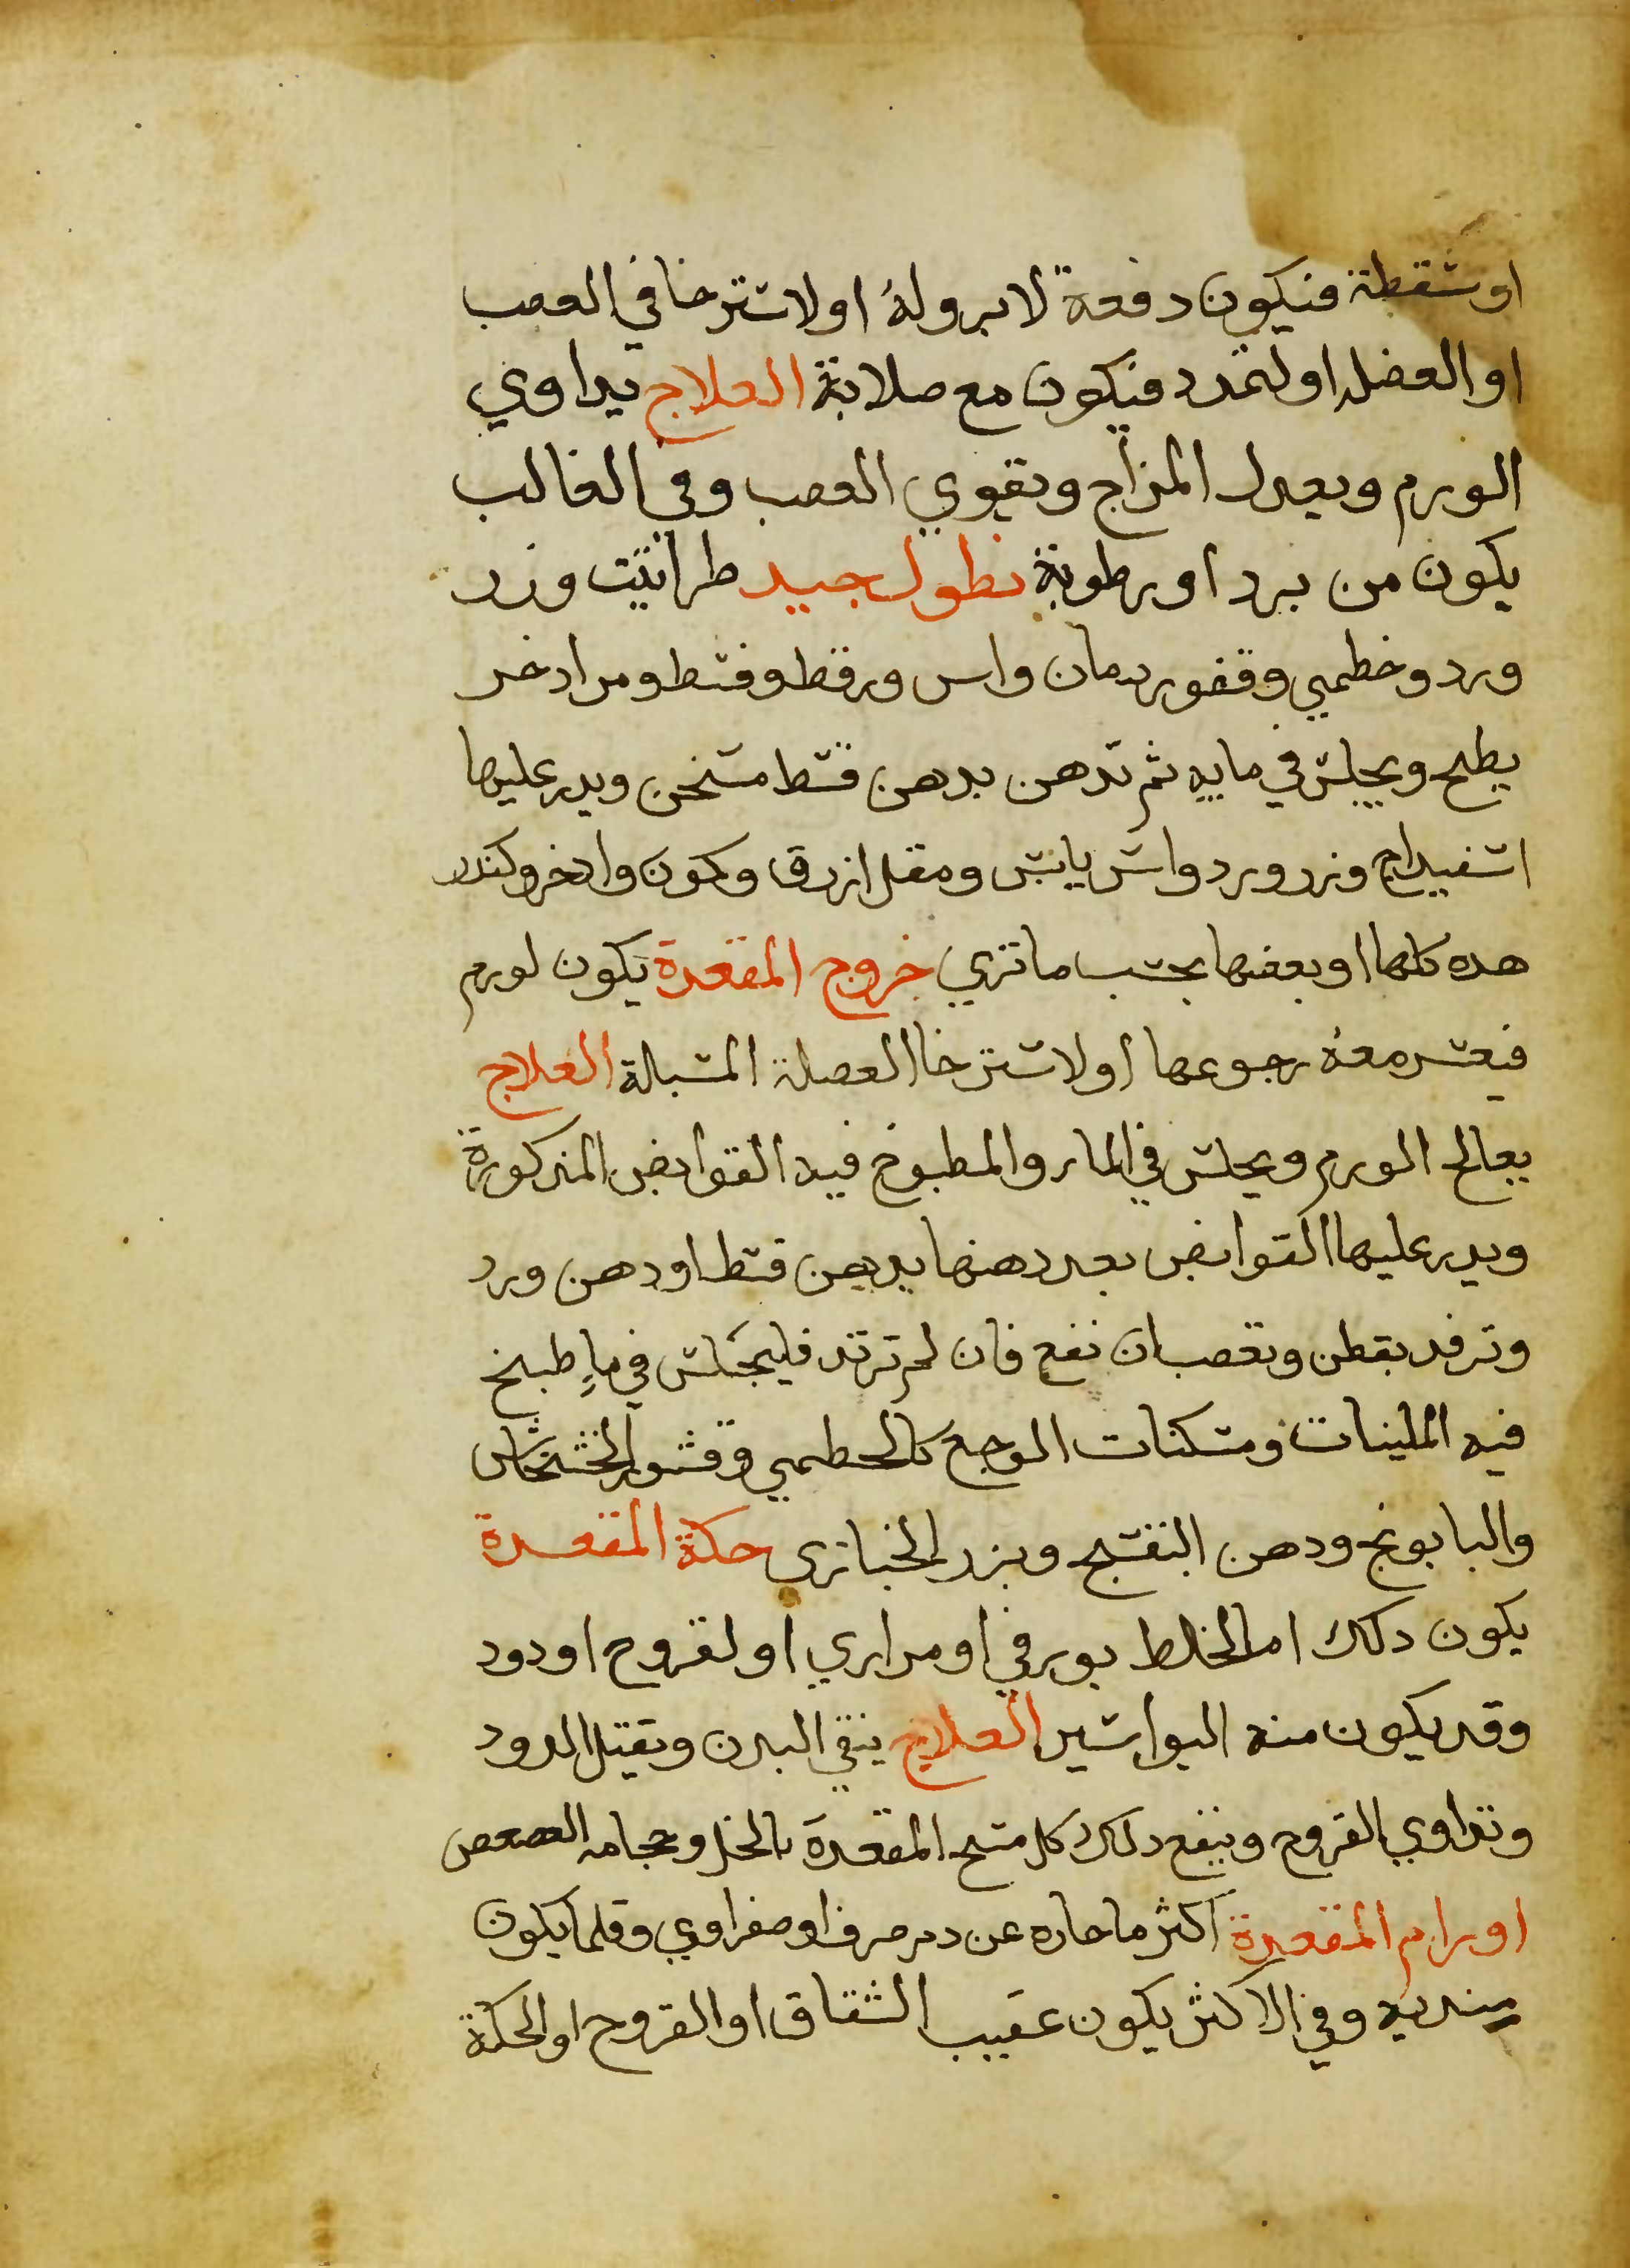 او سقطة فيكون دفعة لا برو له او لاسترخا في العصب
او العضل او لتمدد فيكون مع صلابة العلاج يداوي
الورم ويعدل المزاج ويقوي العصب وفي الغالب
يكون من برد او رطوبة نطول جيد طراثيث وزر
ورد وخطمي وقشور رمان واس وقرط وقسط ومر ادخر
يطبخ ويجلس في مايه ثم تدهن بدهن قسط مسخن ويدر عليها
اسفيداج وزر ورد واس يابس ومقل ازرق وكمون وادخر وكندر
هده كلها او بعضها بحسب ما تري خروج المقعدة يكون لورم
فيعسر معه رجوعها او لاسترخا العضلة المشالة العلاج
يعالج الورم ويجلس في الماء والمطبوخ فيه القوابض المذكورة
ويدر عليها القوابض بعد دهنها بدهن قسط او دهن ورد
وترفد بقطن وتعصب ان نفع فان لم ترتد فليجلس في ماء طبخ
فيه الملينات ومسكنات الوجع كالخطمي وقشور الخشخاش
والبابونج ودهن البنفسج وبزر الخبازي حكة المقعدة
يكون دلك اما لخلط بورقي او مراري او لقروح او دود
وقد يكون منه البواسير العلاج ينقي البدن ويقتل الدود
وتداوي القروح وينفع دلك كل مسح المقعدة بالخل وحجامه العصعص
اورام المقعدة اكثرها حاره عن دم صرف او صفراوي وقلما يكون
مبتديه وفي الاكثر يكون عقيب الشقاق او القروح او الحكة